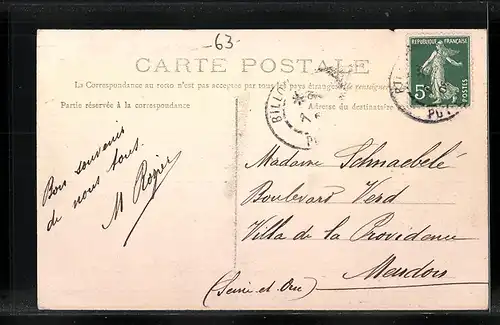 -63-
RÉPUBLIQUE FRANÇAISE
5c
POSTES
CARTE POSTALE
La Correspondance au recto n'est pas acceptée par tous les pays étrangers
Partie réservée à la correspondance
Adresse du destinataire
BILLOM
Bon souvenir
de nous tous.
M Rogier
Madame Schnaebelé
Boulevard Verd
Villa de la Providence
Meudon
(Seine et Oise)